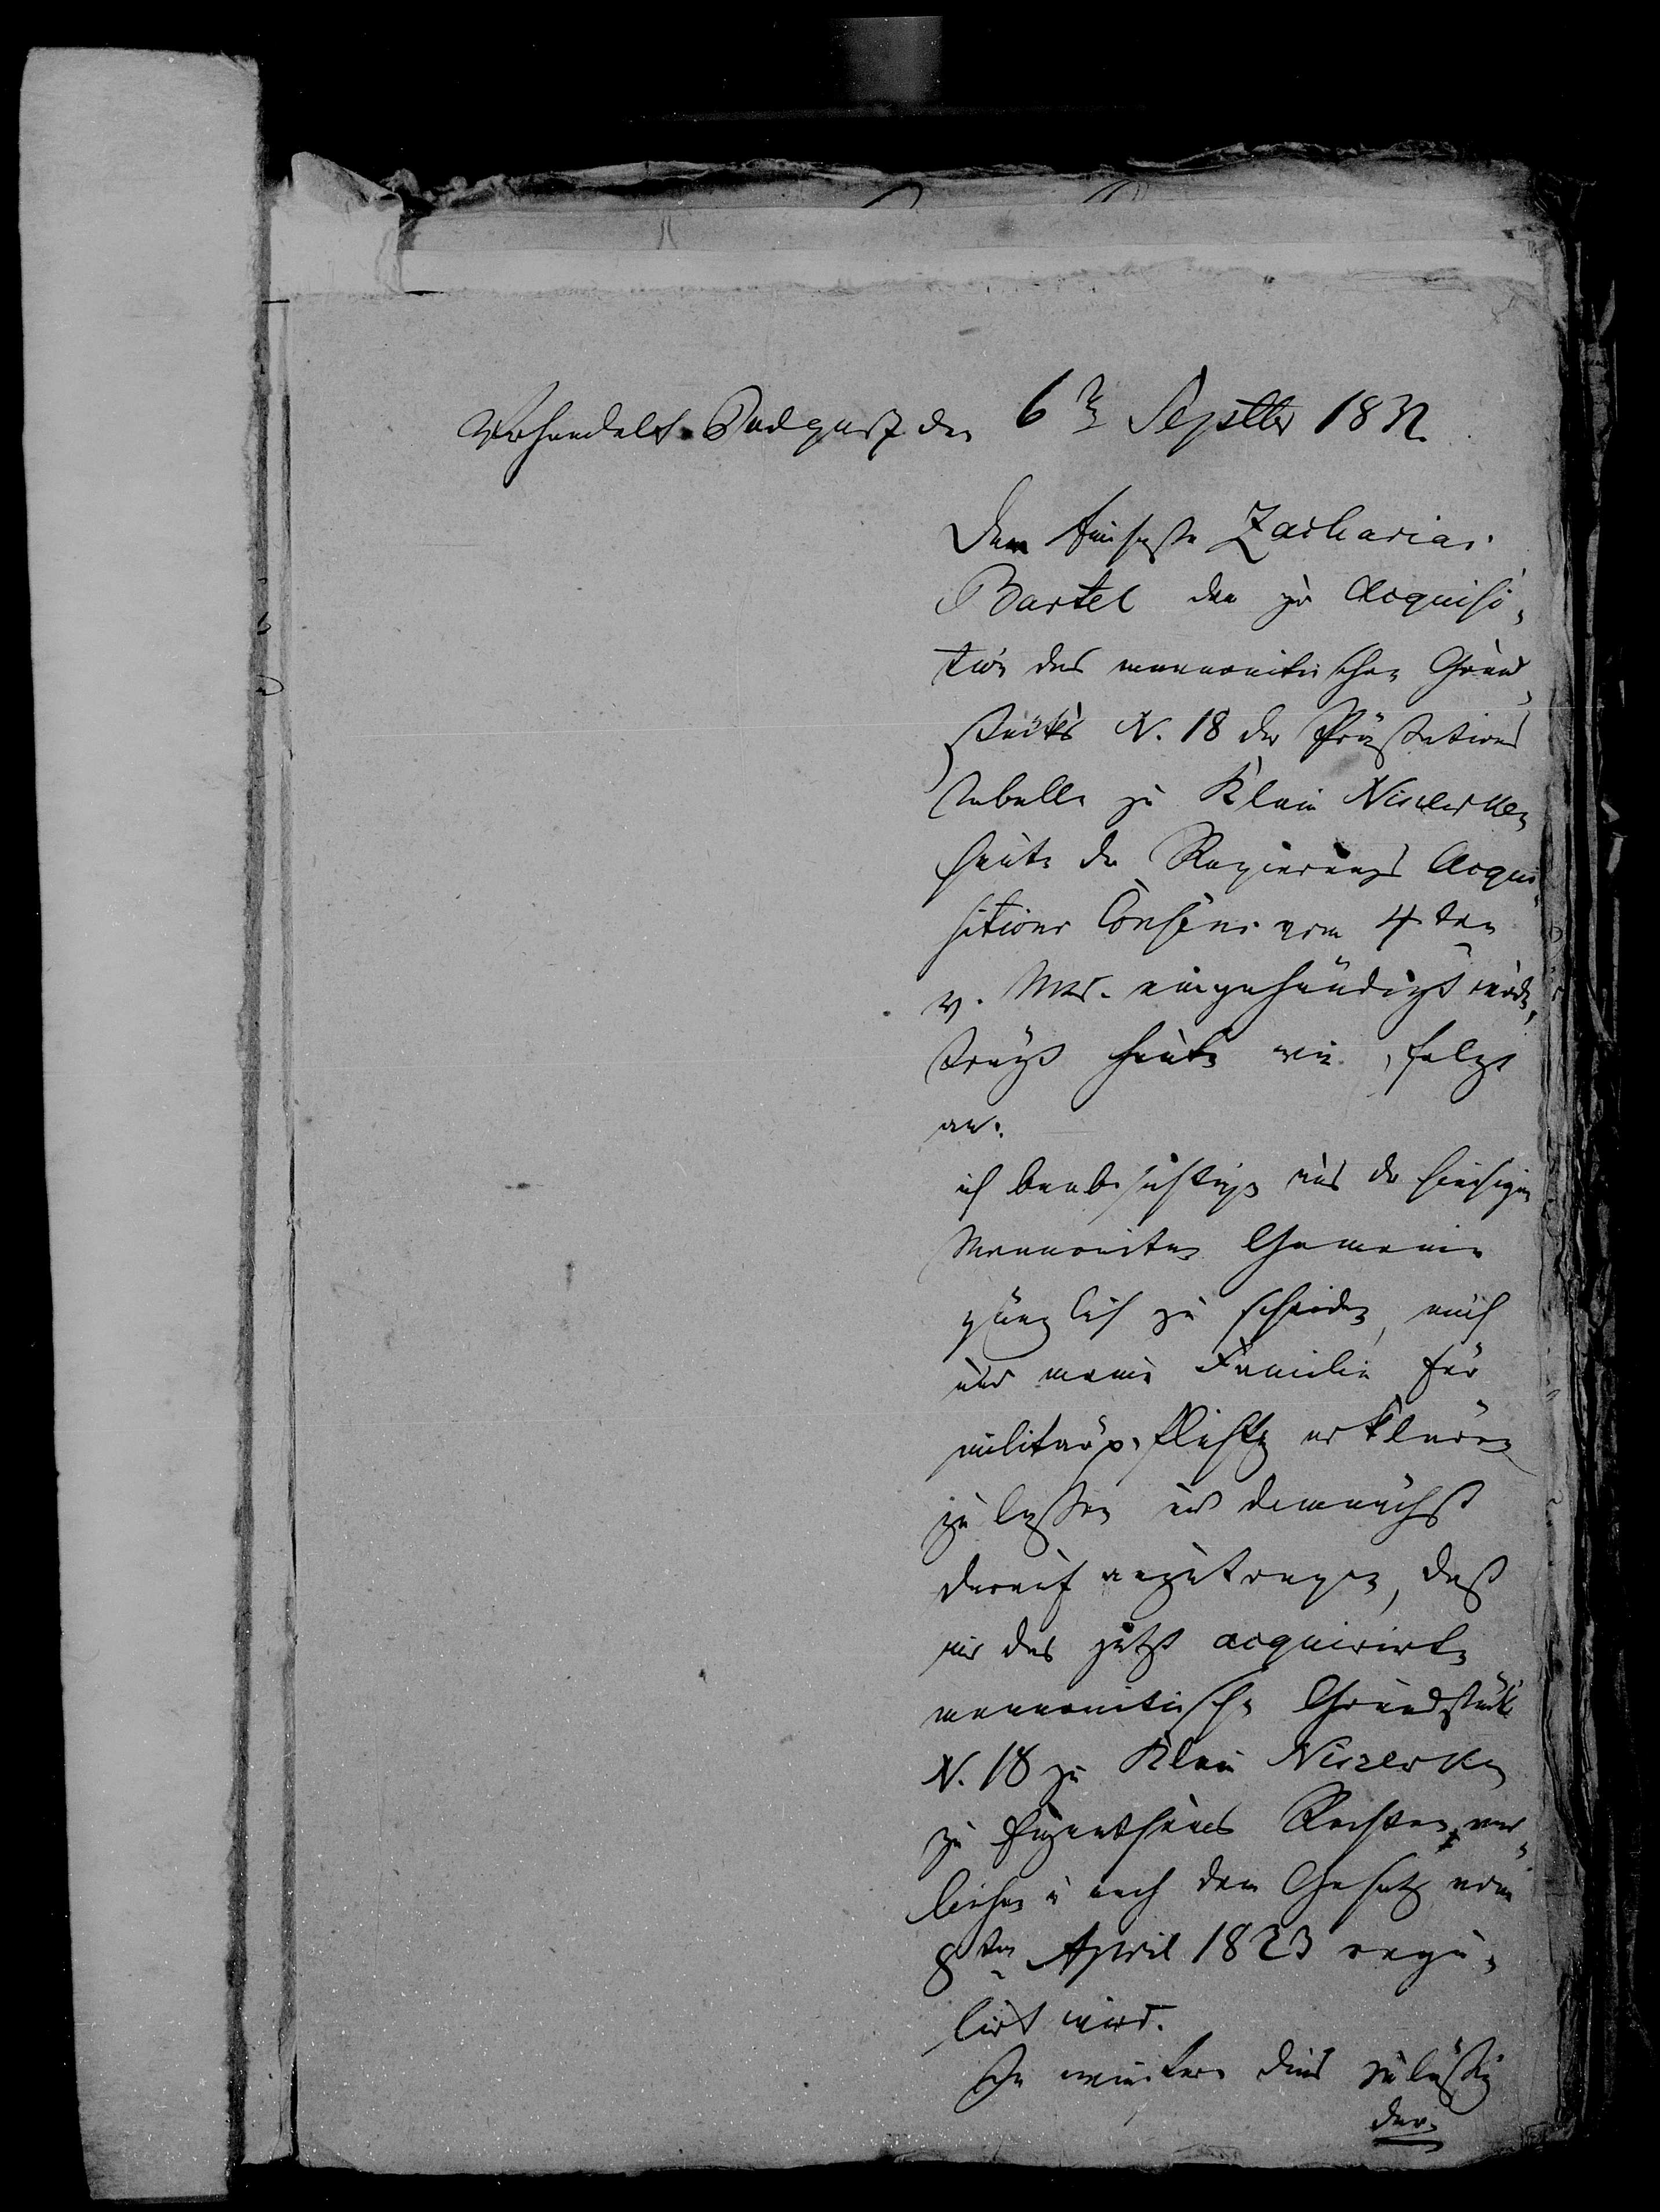 Verhandelt Podgurz den 6ten Septbr 1832.
Dem Einsasse Zacharias
Bartel dem zur Acquisi-
tion des mennonitischen Grund-
stücks N. 18 der Prästations
tabelle zu Klein Niszewken
heute der Regierungs Acqui-
sitions Consens vom 4ten
v. Mts. eingehändigt wurde,
trägt heute wie folgt
an.
ich beabsichtige aus der hiesigen
Mennoniten Gemeine
gänzlich zu scheiden, mich
und meine Familie für
militärpflichtig erklären
zu lassen und demnächst
darauf anzutragen, daß
mir das jetzt acquirirte
mennonitische Grundstück
N. 18 zu Klein Niszewken
zu Eigenthums Rechten ver-
liehen u nach dem Gesetz vom
8ten April 1823 regu-
lirt wird.
In wiefern dies zuläßig